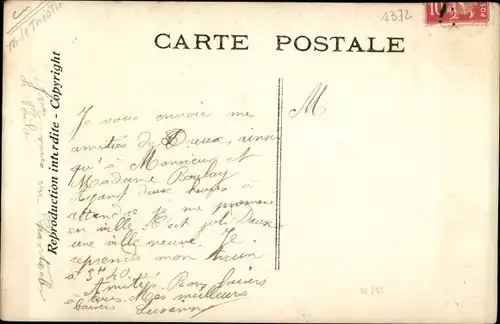 1372
10
POSTES
CARTE POSTALE
Reproduction interdite - Copyright
M
Je vous envoie mes
amitiés de Dreux, ainsi
qu'à Monsieur et
Madame
Ayant deux heures à
attendre je me promène
en ville. C'est joli Dreux
une ville neuve. Je
reprends mon train
à 3h 40.
Amitiés. Bons baisers
à tous. Mes meilleurs
baisers Suzanne